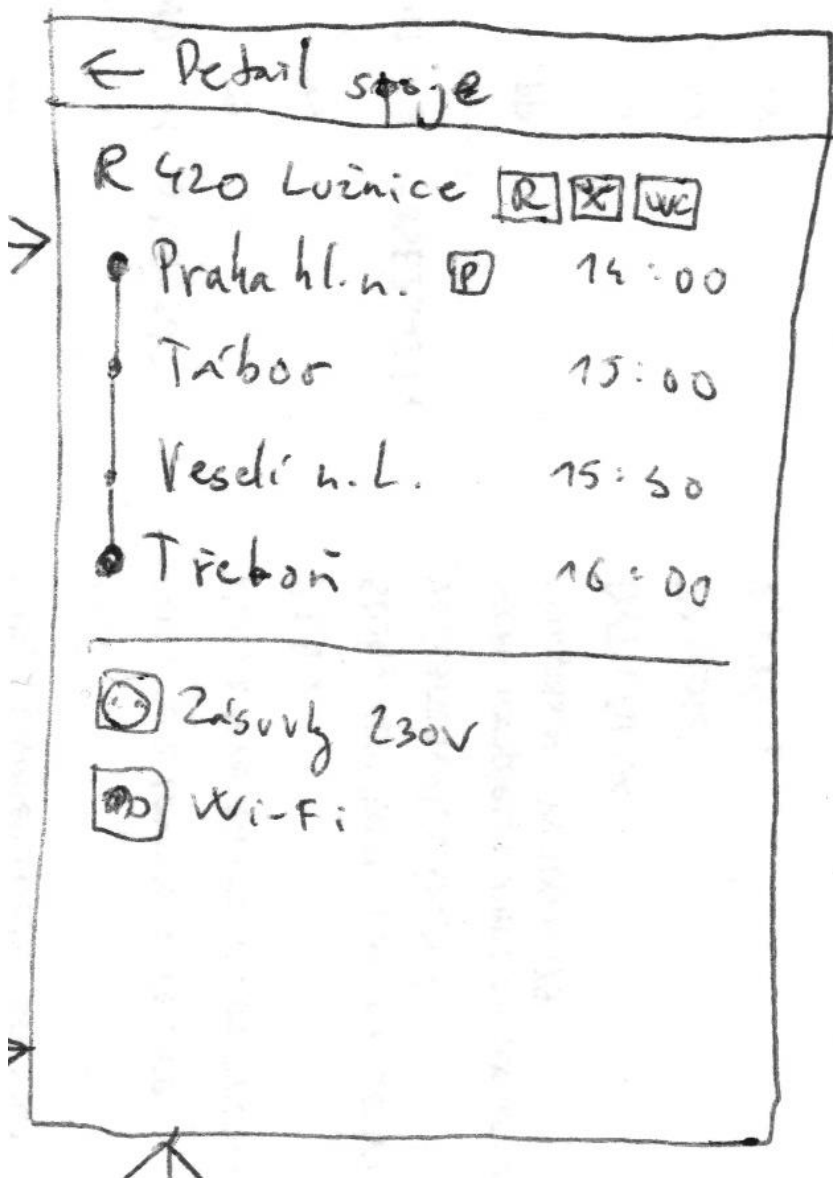 ← Detail spoje
R 420 Lužnice R WC
Praha hl. n. P 14:00
Tábor 15:00
Veselí n. L. 15:30
Třeboň 16:00
Zásuvky 230V
Wi-Fi